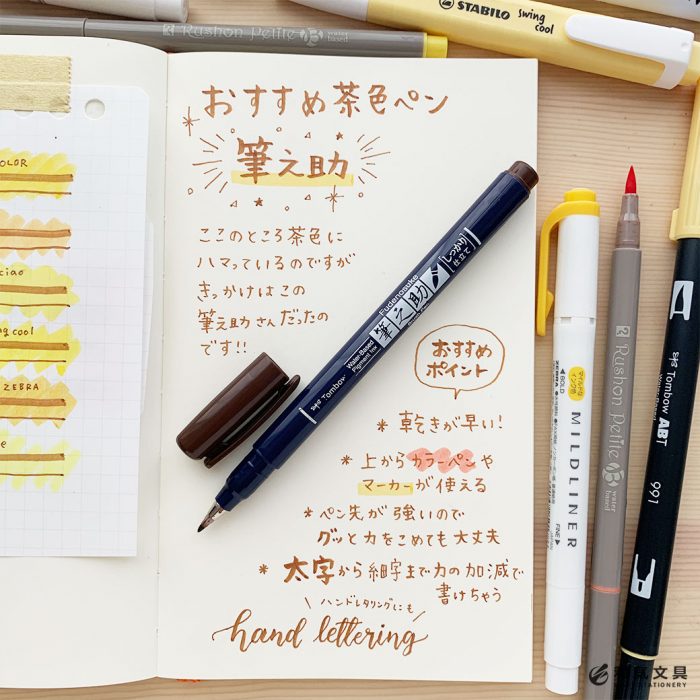 STABILO swing cool
Rushon Petite water based
おすすめ茶色ペン
筆之助
ここのところ茶色に
ハマっているのですが
きっかけはこの
筆之助さんだったの
です!!
Fudenosuke
筆之助
しっかり仕立て
Water-Based
Pigment Ink
Tombow
おすすめ
ポイント
* 乾きが早い!
* 上からカラーペンや
マーカーが使える
* ペン先が強いので
グッと力をこめても大丈夫
* 太字から細字まで力の加減で
書けちゃう
ハンドレタリングにも
hand lettering
OLOR
ciao
ng cool
ZEBRA
e
BOLD
マイルドな
ZEBRA
MILDLINER
FINE
Rushon Petite water based
Tombow ABT
991
文具
STATIONERY